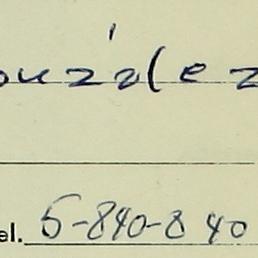 onzález
el. 5-840-840